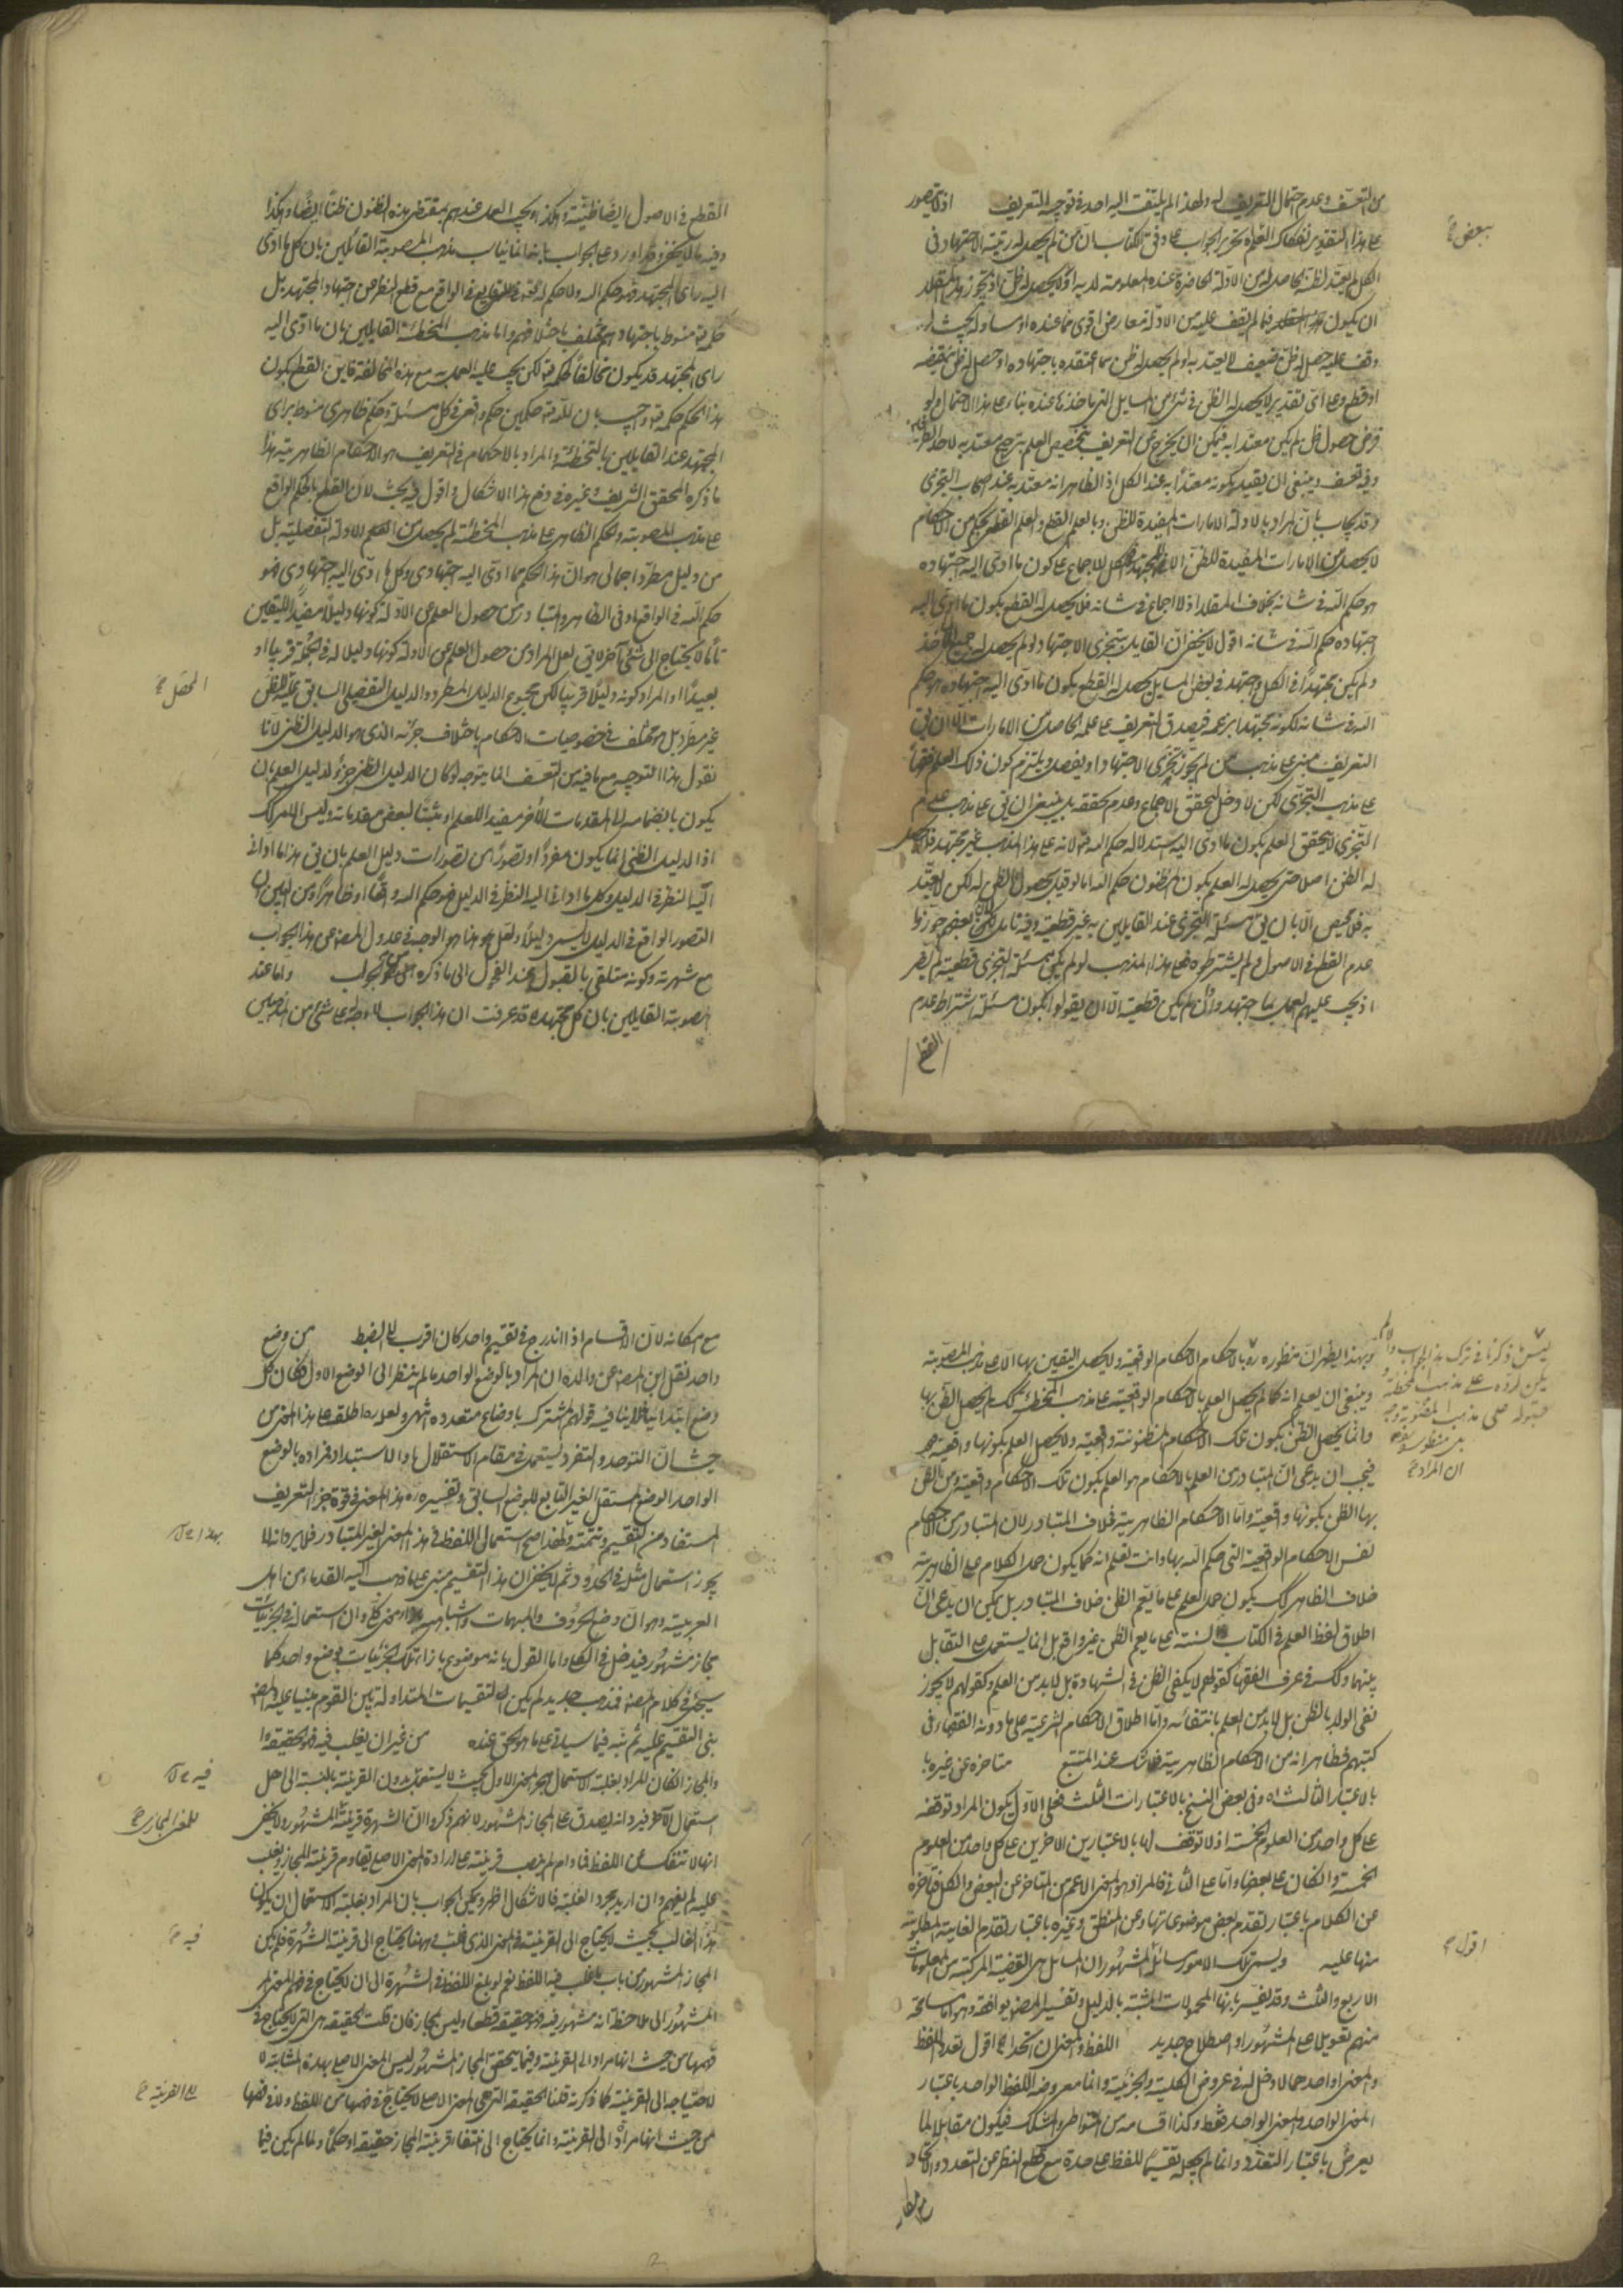 من التعسف وعدم احتمال التعريف له ولهذا لم يلتفت اليه احد في توجيه التعريف اذ لا يتصور
على هذا التقدير انفكاك العلم
الكل لم يعتد لظنه الحاصل له من الادلة الحاضرة عنده المعلومة لديه او لا يحصل له ظن اذ تجوز
ان يكون فيما لم يقف عليه من الادلة معارض اقوى مما عنده او مساو له بحيث لو
وقف عليه حصل له ظن ضعيف لا يعتد به او لم يحصل له ظن مما اعتقده باجتهاده او حصل له ظن بنقيضه
او قطع وعلى اي تقدير لا يحصل له الظن في شئ من المسايل التي ماخذها عنده بناء على هذا الاحتمال ولو
فرض حصول ظن لم يكن معتدا به فيمكن ان يخرج عن التعريف بتخصيص العلم بترجيح معتد به لاحد الطرفين
وفيه تعسف وينبغي ان يقيد بكونه معتدا به عند الكل اذ الظاهر انه معتد به عند اصحاب التجزي
وقد يجاب بان المراد بالادلة الامارات المفيدة للظن وبالعلم القطع والعلم القطعي بحكم من الاحكام
لا يحصل من الامارات المفيدة للظن الا للمجتهد في الكل للاجماع على كون ما ادى اليه اجتهاده
هو حكم الله في شانه بخلاف المقلد اذ لا اجماع في شانه فلا يحصل له القطع بكون ما ادى اليه
اجتهاده حكم الله في شانه اقول لا يخفى ان القايل بتجزي الاجتهاد لو لم يحصل له جميع الماخذ
ولم يكن مجتهدا في الكل واجتهد في بعض المسايل يحصل له القطع بكون ما ادى اليه اجتهاده هو حكم
الله في شانه لكونه مجتهدا بزعمه فيصدق التعريف على علمه الحاصل من الامارات الا ان يق
التعريف مبني على مذهب من لم يجوز تجزي الاجتهاد او يفصل ويلتزم كون ذلك العلم فقها
على مذهب التجزي لكن لا دخل لتحقق الاجماع وعدم تحققه بل ينبغي ان يق على مذهب عدم
التجزي لا يتحقق العلم بكون ما ادى اليه استدلاله حكم الله تع لانه على هذا المذهب غير مجتهد فلا يحصل
له الظن اصلا حتى يحصل له العلم بكون المظنون حكم الله اما لو قيل بحصول الظن له لكن لا يعتد
به فلا محيص الا بان يق مسئلة التجزي عند القايلين به غير قطعية وفيه تامل لان بعضهم جوزوا
عدم القطع في الاصول ولم يشترطوه فعلى هذا المذهب لو لم يكن مسئلة التجزي قطعية لم يضر
اذ يجب عليهم العمل بما اجتهدوا وان لم يكن قطعية الا ان يقولوا بكون مسئلة اشتراط عدم
القطع
ببعض
القطع في الاصول ايضا ظنية وهكذا ويجب العمل عندهم بمقتضى هذه الظنون ظنا ايضا وهكذا
وفيه ما لا يخفى وقد اورد على الجواب بانه انما يناسب مذهب المصوبة القائلين بان كل ما ادى
اليه راى المجتهد فهو حكم الله ولا حكم له تع في الواقع مع قطع النظر عن اجتهاد المجتهد بل
حكمه تع منوط باجتهادهم مختلف باختلافهم واما مذهب المخطئة القايلين بان ما ادى اليه
راى المجتهد قد يكون مخالفا لحكمه تع لكن يجب عليه العمل به مع هذه المخالفة فاين القطع بكون
هذا الحكم حكمه تع واجيب بان لله تع حكمين حكم واقعي في كل مسئلة وحكم ظاهري منوط براى
المجتهد عند القايلين بالتخطئة والمراد بالاحكام في التعريف هو الاحكام الظاهرية هذا
ما ذكره المحقق الشريف وغيره في دفع هذا الاشكال واقول فيه بحث لان القطع بالحكم الواقع
على مذهب المصوبة والحكم الظاهر على مذهب المخطئة لم يحصل من الادلة التفصيلية بل
من دليل مطرد اجمالي هو ان هذا الحكم مما ادى اليه اجتهادي وكل ما ادى اليه اجتهادي فهو
حكم الله في الواقع او في الظاهر والمتبادر من حصول العلم عن الادلة كونها دليلا مفيدا لليقين
تاما لا يحتاج الى شئ آخر لا يق لعل المراد من حصول العلم عن الادلة كونها دليلا له في الجملة قريبا او
بعيدا او المراد كونه دليلا قريبا لكن مجموع الدليل المطرد والدليل التفصيلي السابق عليه الظن
غير مطرد بل هو مختلف في خصوصيات الاحكام باختلاف جزئه الذي هو الدليل الظني لانا
نقول هذا التوجيه مع ما فيه من التعسف انما يتوجه لو كان الدليل الظني جزء لدليل العلم بان
يكون بانضمامه الى المقدمات الاخر مفيدا للعلم او مثبتا لبعض مقدماته وليس الامر كك
اذ الدليل الظني انما يكون مفردا او تصورا من تصورات دليل العلم بان يق هذا ما اداني
اليه النظر في الدليل وكل ما اداني اليه النظر في الدليل فهو حكم الله واقعا او ظاهرا ومن البين ان
التصور الواقع في الدليل ليس دليلا ولعل هذا هو الوجه في عدول المص عن هذا الجواب
مع شهرته وكونه متلقى بالقبول عند الفحول الى ما ذكره من الجواب واما عند
المصوبة القايلين بان كل مجتهد قد عرفت ان هذا الجواب لا وجه على شئ من المذهبين
المحصل
وبهذا يظهر ان منظوره ره بالاحكام الاحكام الواقعية ولا يحصل اليقين بها الا على مذهب المصوبة
وينبغي ان يعلم انه كما لم يحصل العلم بالاحكام الواقعية على مذهب المخطئة كك لم يحصل الظن بها
وانما يحصل الظن بكون تلك الاحكام المظنونة واقعية ولا يحصل العلم بكونها واقعية
فيجب ان يدعى ان المتبادر من العلم بالاحكام هو العلم بكون تلك الاحكام واقعية ومن الظن
بها الظن بكونها واقعية واما الاحكام الظاهرية فخلاف المتبادر لان المتبادر من الاحكام
نفس الاحكام الواقعية التي حكم الله بها وانت تعلم انه كما يكون حمل الكلام على الظاهرية
خلاف الظاهر كك يكون حمل العلم على ما يعم الظن خلاف المتبادر بل يمكن ان يدعى ان
اطلاق لفظ العلم في الكتاب والسنة على ما يعم الظن غير واقع بل انما يستعمل على التقابل
بينهما وكك في عرف الفقها كقولهم لا يكفي الظن في الشهادة بل لابد من العلم وكقولهم لا يجوز
نفي الولد بالظن بل لابد من العلم بانتفائه واما اطلاق الاحكام الشرعية على ما دونه الفقهاء في
كتبهم فظاهر انه من الاحكام الظاهرية عند المتتبع متاخرة عن غيره با
بالاعتبار الثالث اه وفي بعض النسخ بالاعتبارات الثلث فعلى الاول يكون المراد توقفه
على كل واحد من العلوم الخمسة اذ لا توقف لها بالاعتبارين الاخرين على كل واحد من العلوم
الخمسة وان كان على بعضها واما على الثاني فالمراد هو المعنى الاعم من المتاخر عن البعض والكل فتاخره
عن الكلام باعتبار تقدم بعض موضوعاتها وعن المنطق وغيره باعتبار تقدم الغاية المطلوبة
منها عليه ويسمى تلك الامور مسائل المشهور ان المسايل هي القضية المركبة من المعلومات
الاربع والثلث وقد يفسر بانها المحمولات المثبتة بالدليل وتفسير المص يوافقه وهو اما مسامحة
منهم تعويلا على المشهور او اصطلاح جديد اللفظ والمعنى ان اتحدا اقول تعدد اللفظ
والمعنى او احدهما لا دخل له في عروض الكلية والجزئية وانما معروضه اللفظ الواحد باعتبار
المعنى الواحد والمعنى الواحد فقط وكذا اقسامه من المتواطي والمشكك فيكون مقابلا لما
يعرض باعتبار التعدد وانما لم يجعله تقسيما للفظ على حدة مع قطع النظر عن التعدد والاتحاد
ان المراد
اقول
مع امكانه لان الاقسام اذا اندرج في تقسيم واحد كان اقرب الى الضبط من وضع
واحد نقل ابن المص عن والده ان المراد بالوضع الواحد ما لم ينظر الى الوضع الاول فكان كل
وضع ابتدائيا فلا ينافيه قولهم المشترك باوضاع متعدده انتهى ولعله ره اطلقه على هذا المعنى من
حيث ان التوحد والتفرد يستعمل في مقام الاستقلال والاستبداد فمراده بالوضع
الواحد الوضع المستقل الغير التابع للوضع السابق وتفسيره ره هذا المعنى في قوة جزء التعريف
المستفاد من التقسيم وتتمته ولهذا صح استعمال اللفظ في هذا المعنى الغير المتبادر فلا يرد انه لا
يجوز استعمال مثله في الحدود ثم لا يخفى ان هذا التقسيم مبني على ما ذهب اليه القدماء من اهل
العربية وهو ان وضع الحروف والمبهمات واشباهها لمعنى كلي وان استعمال في الجزئيات
مجاز مشهور فيدخل في الكلي واما القول بانه موضوع بازاء تلك الجزئيات بوضع واحد كما
سيجئ في كلام المص فمذهب جديد لم يكن التقسيمات المتداولة بين القوم مبنيا عليه والمص
بنى التقسيم عليه ثم نبه فيما سيأتي على ما هو الحق عنده من غير ان يغلب فيه فهو الحقيقة
والمجاز ان كان المراد بغلبة الاستعمال هجر المعنى الاول بحيث لا يستعمل بدون القرينة بالنسبة الى اهل
استعمال الاخر فيرد انه يصدق على المجاز المشهور لانهم ذكروا ان الشهرة قرينة المشهور ولا يخفى
انها لا تنفك عن اللفظ فما دام لم ينصب قرينة على ارادة المعنى الاصلي يقاوم قرينة المجاز ويغلب
عليه لم يفهم وان اريد مجرد الغلبة فالاشكال اظهر ويمكن الجواب بان المراد بغلبة الاستعمال ان يكون
هذا الغالب بحيث لا يحتاج الى القرينة في المعنى الذي غلب وههنا يحتاج الى قرينة الشهرة فلم يكن
المجاز المشهور من باب ما غلب فيه اللفظ نعم لو بلغ اللفظ في الشهرة الى ان لا يحتاج في فهم المعنى
المشهور الى ملاحظة انه مشهور فيه فهو حقيقة قطعا وليس بمجاز فان قلت الحقيقة هي التي لا يحتاج في
فهمها من حيث انها مراد الى القرينة وفيما يتحقق المجاز المشهور ليس المعنى الاصلي بهذه المثابة
لاحتياجه الى القرينة كما ذكرته قلنا الحقيقة التي هي المعنى الاصلي لا يحتاج في فهمها من اللفظ ولا في فهمها
من حيث انها مرادة الى القرينة وانما يحتاج الى انتفاء قرينة المجاز حقيقة او حكما ولما لم يكن فيما
فيه
للمعنى المجازي
فيه
الى القرينة